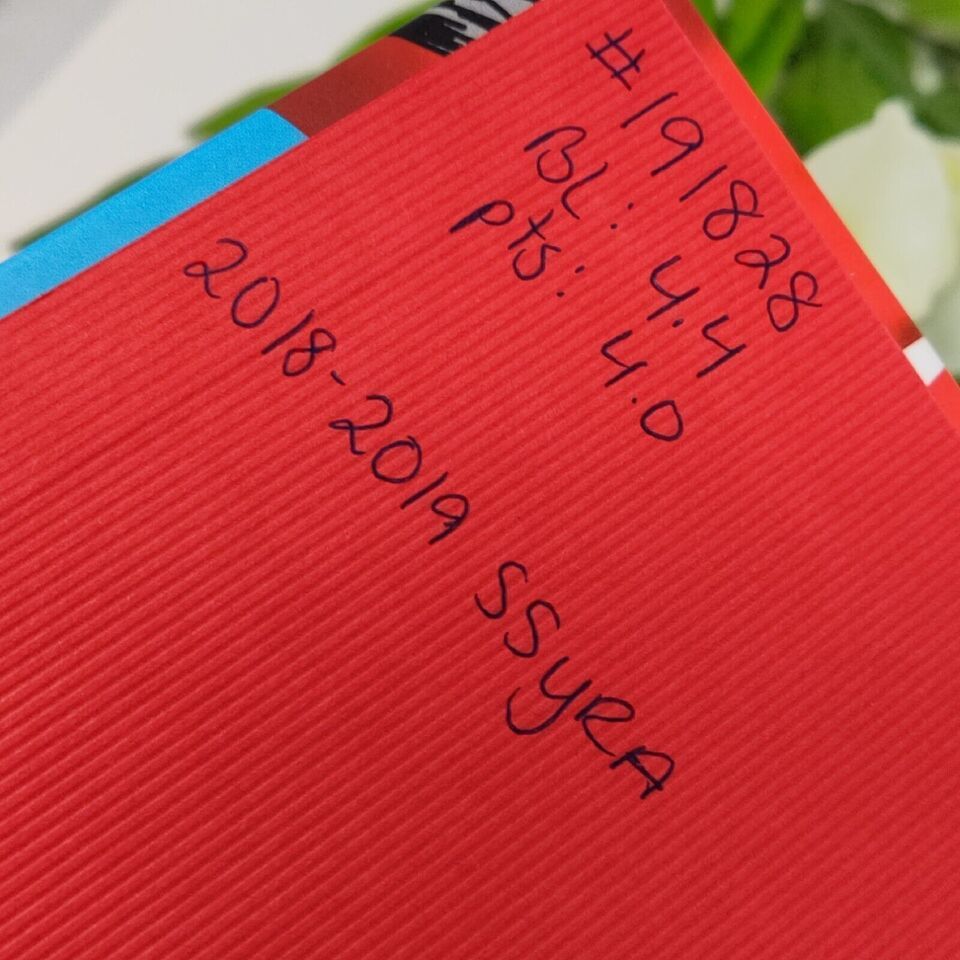 #191828
BL: 4.4
pts: 4.0
2018-2019 SSYRA